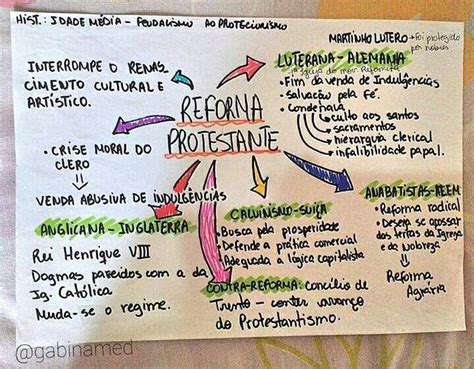 HIST.: IDADE MÉDIA - FEUDALISMO AO PROTECIONISMO
MARTINHO LUTERO → Foi protegido
por nobres
LUTERANA - ALEMANIA
1ª Igreja do mov. Reformista
- Fim da venda de Indulgências
- Salvação pela fé.
- Condenava
→ culto aos santos
→ sacramentos
→ hierarquia clerical
→ infalibilidade papal.
INTERROMPE O RENAS
CIMENTO CULTURAL E
ARTÍSTICO.
REFORMA
PROTESTANTE
• CRISE MORAL DO
CLERO
VENDA ABUSIVA DE INDULGÊNCIAS
ANGLICANA - INGLATERRA
Rei Henrique VIII
Dogmas parecidos com a da
Ig. Católica
Muda-se o regime.
CALVINISMO - SUIÇA
• Busca pela prosperidade
• Defende a prática comercial
• Adequada à lógica capitalista
CONTRA-REFORMA: CONCÍLIO DE
Trento - conter avanço
do Protestantismo.
ANABATISTAS-
• Reforma radical
• Deseja se apossar
das terras da Igreja
e da Nobreza
Reforma
Agrária
@gabinamed